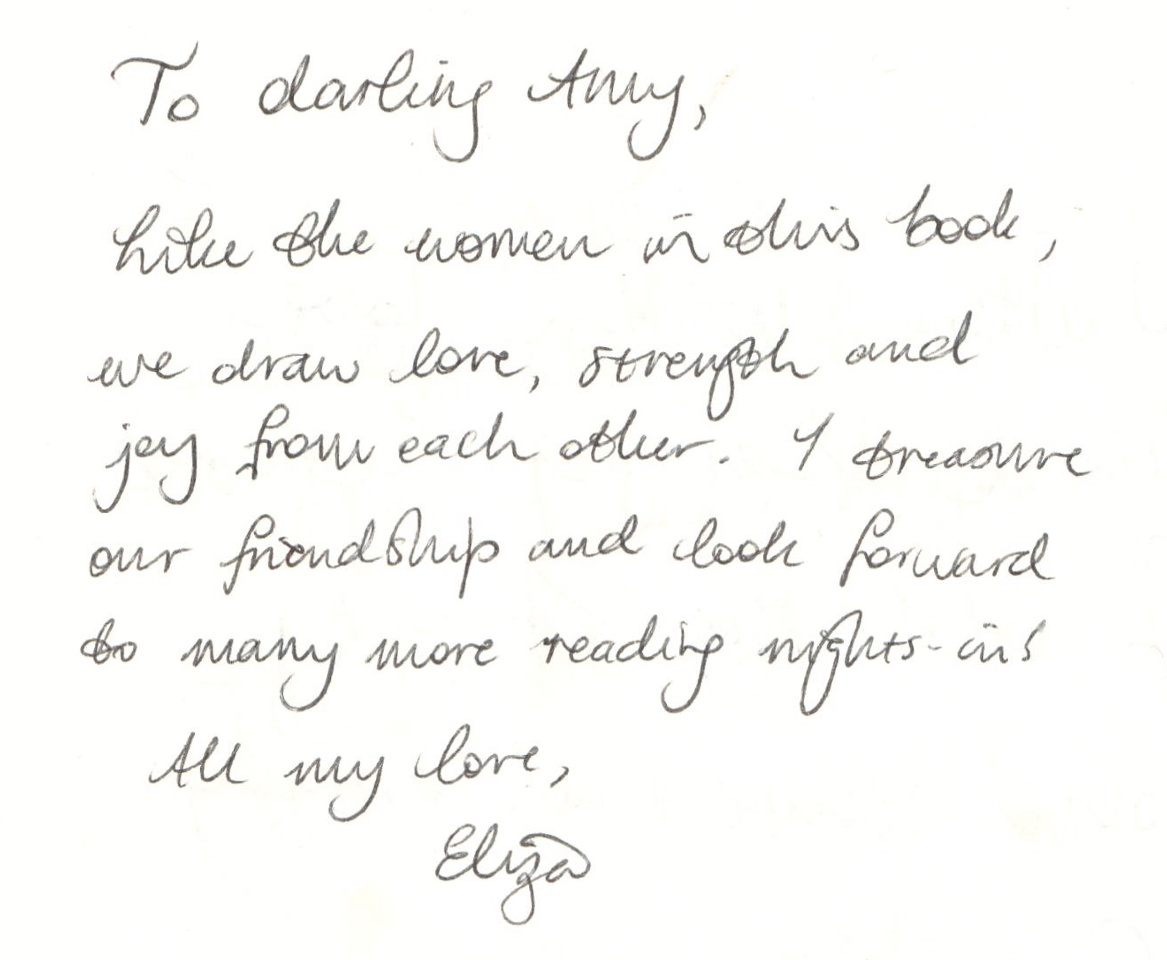 To darling Amy,
Like the women in this book,
we draw love, strength and
joy from each other. I treasure
our friendship and look forward
to many more reading nights-in!
All my love,
Eliza